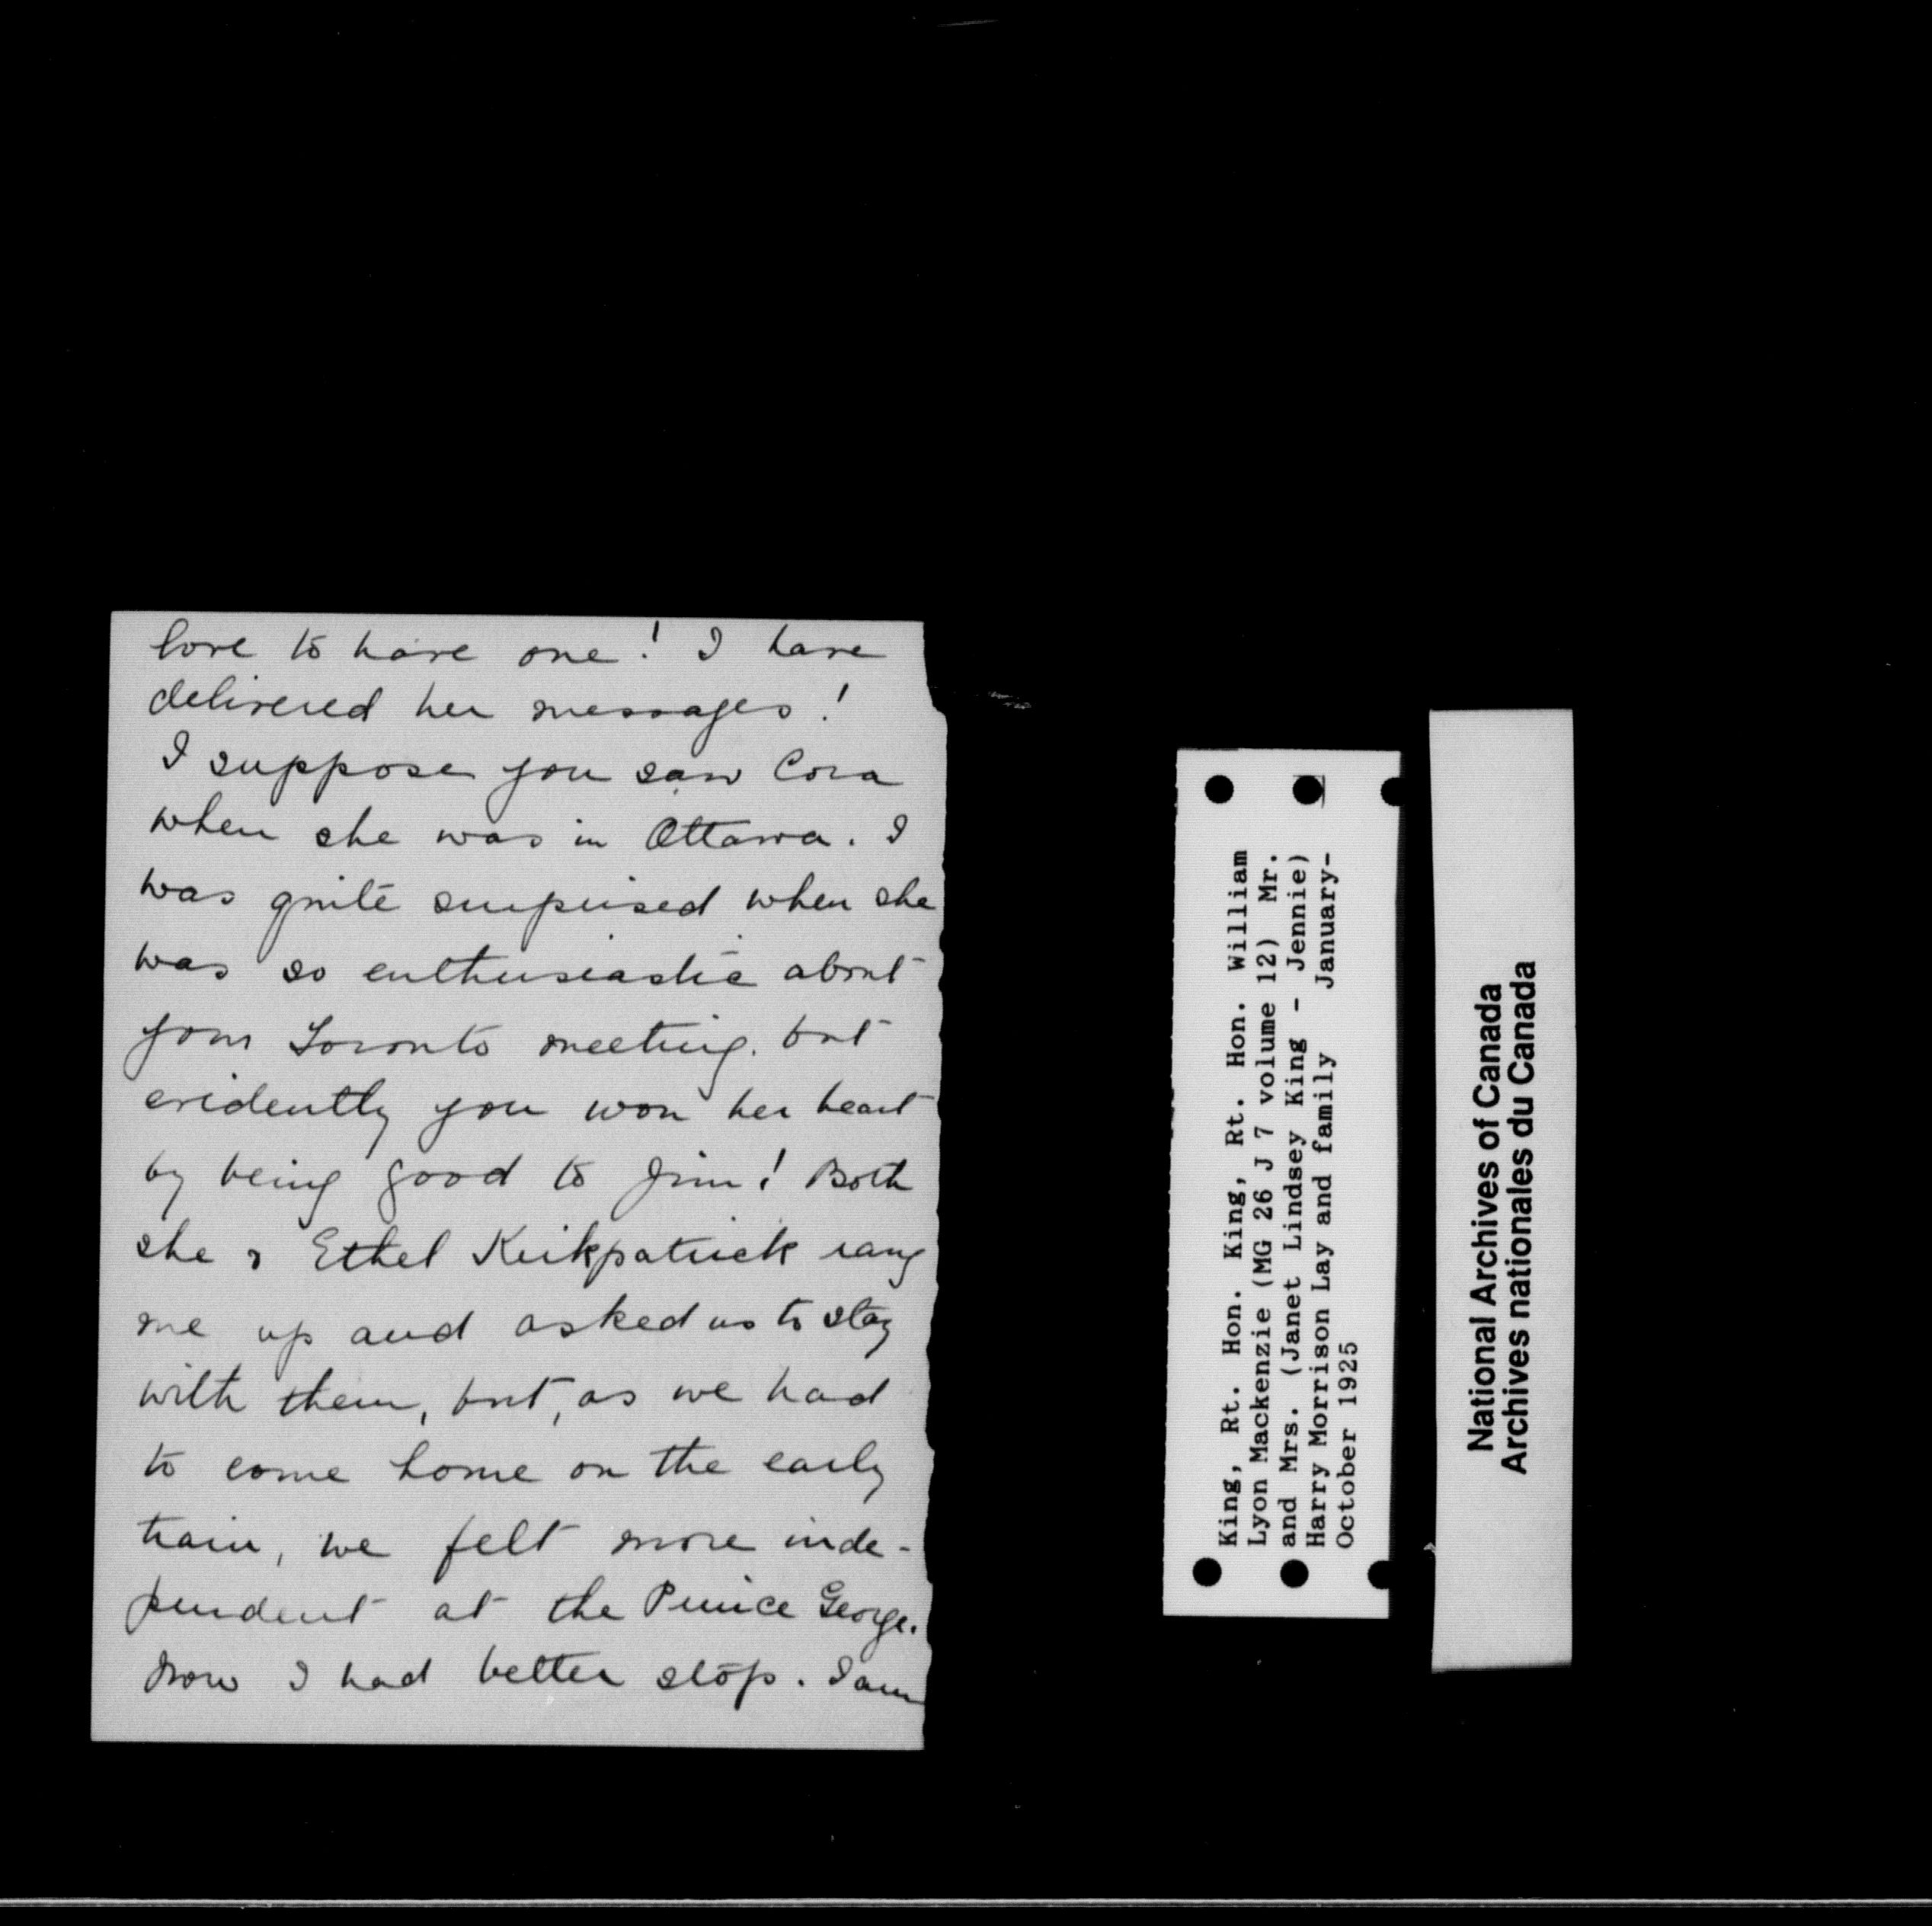 love to have one! I have
delivered her messages!
I suppose you saw Cora
when she was in Ottawa. I
was quite surprised when she
was so enthusiastic about
your Toronto meeting. but
evidently you won her heart
by being good to Jim! Both
she & Ethel Kirkpatrick rang
me up and asked us to stay
with them, but, as we had
to come home on the early
train, we felt more inde-
pendent at the Prince George.
Now I had better stop. I am
King, Rt. Hon. King, Rt. Hon. William
Lyon Mackenzie (MG 26 J 7 volume 12) Mr.
and Mrs. (Janet Lindsey King - Jennie)
Harry Morrison Lay and family January-
October 1925
National Archives of Canada
Archives nationales du Canada